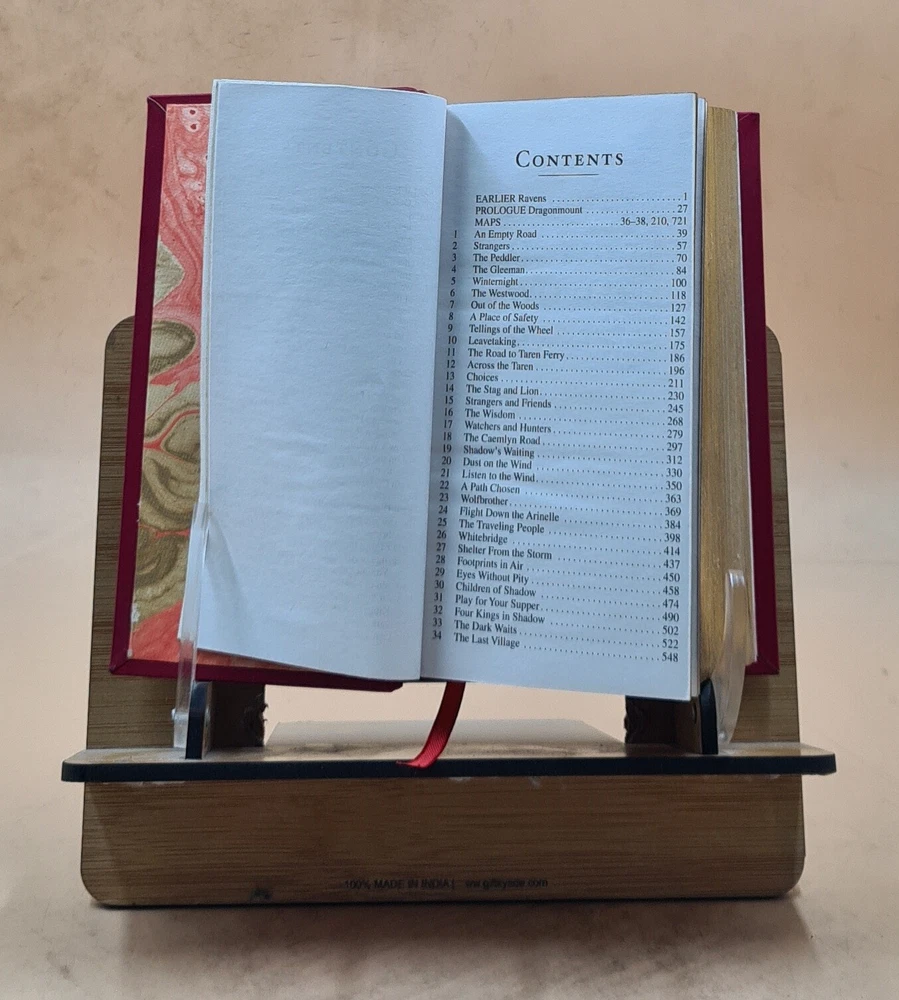 CONTENTS
EARLIER Ravens 1
PROLOGUE Dragonmount 27
MAPS 36–38, 210, 721
1 An Empty Road 39
2 Strangers 57
3 The Peddler 70
4 The Gleeman 84
5 Winternight 100
6 The Westwood 118
7 Out of the Woods 127
8 A Place of Safety 142
9 Tellings of the Wheel 157
10 Leavetaking 175
11 The Road to Taren Ferry 186
12 Across the Taren 196
13 Choices 211
14 The Stag and Lion 230
15 Strangers and Friends 245
16 The Wisdom 268
17 Watchers and Hunters 279
18 The Caemlyn Road 297
19 Shadow's Waiting 312
20 Dust on the Wind 330
21 Listen to the Wind 350
22 A Path Chosen 363
23 Wolfbrother 369
24 Flight Down the Arinelle 384
25 The Traveling People 398
26 Whitebridge 414
27 Shelter From the Storm 437
28 Footprints in Air 450
29 Eyes Without Pity 458
30 Children of Shadow 474
31 Play for Your Supper 490
32 Four Kings in Shadow 502
33 The Dark Waits 522
34 The Last Village 548
100% MADE IN INDIA |